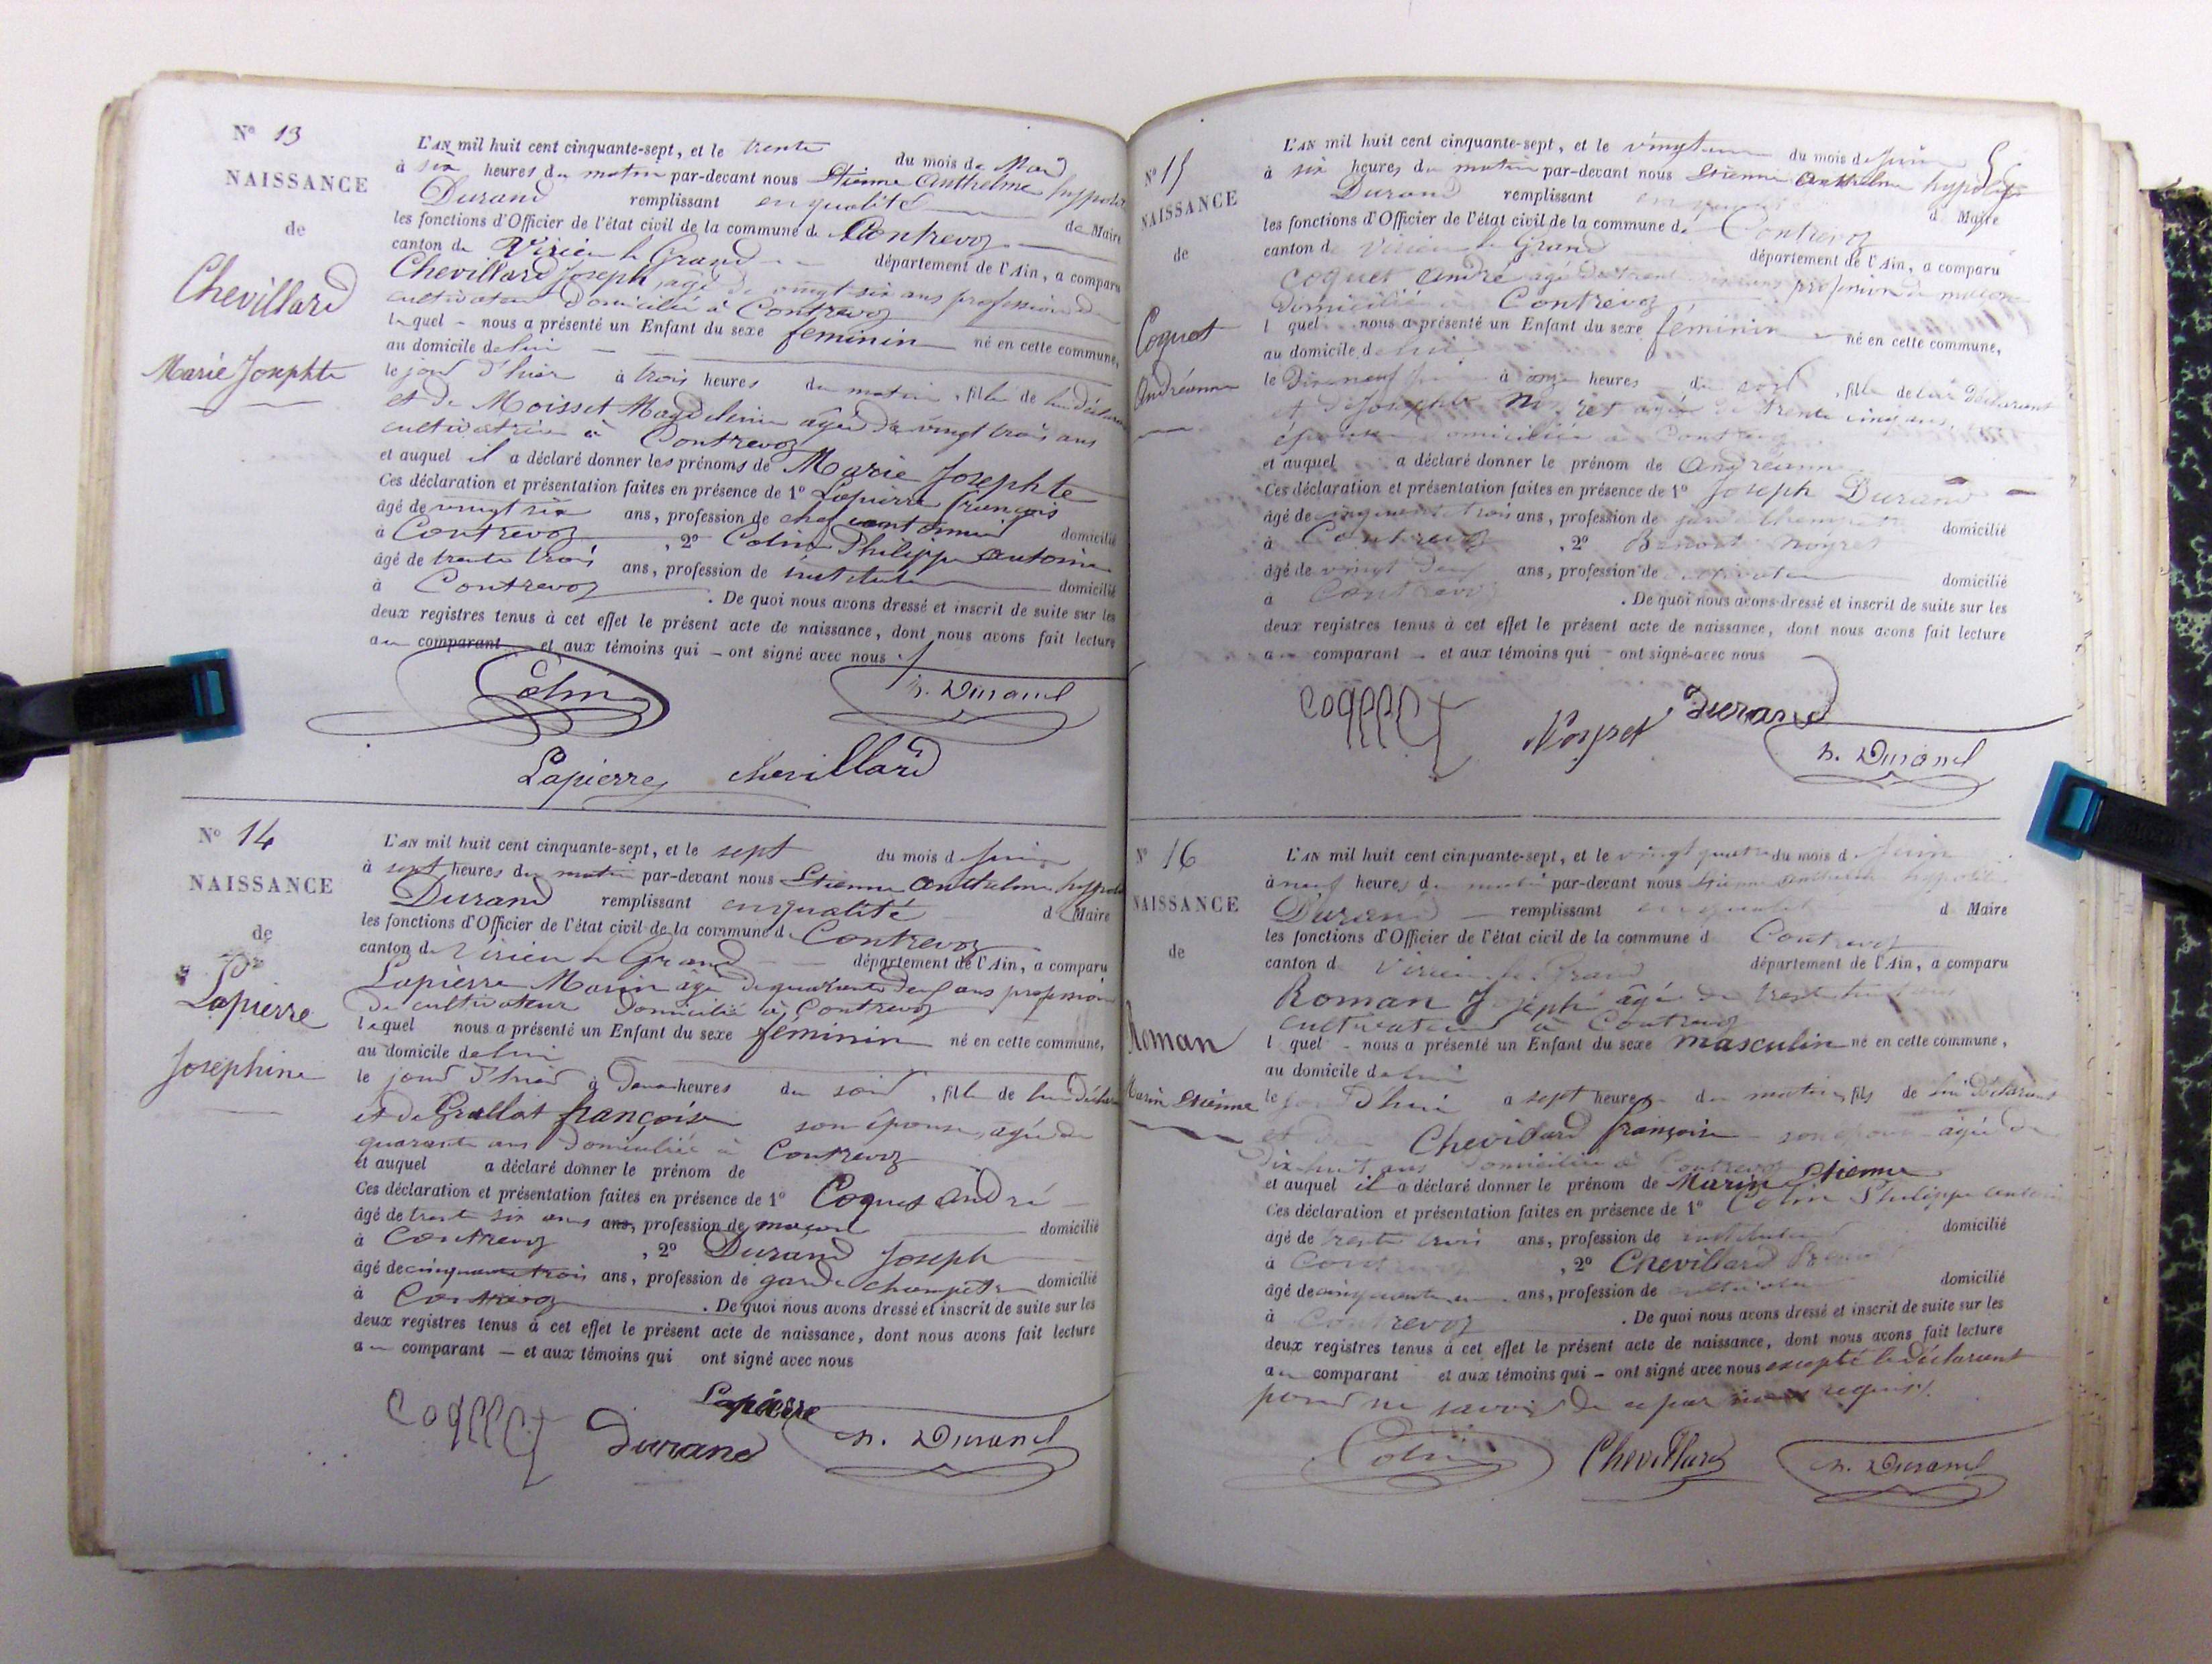 Nº 13
NAISSANCE
de
Chevillard
Marie Josephte
L'AN mil huit cent cinquante-sept, et le trente du mois de Mai
à six heures du matin par-devant nous Etienne Anthelme hyppolite
Durand remplissant en qualité de Maire
les fonctions d'Officier de l'état civil de la commune de Contrevoz
canton de Virieu le Grand département de l'Ain, a comparu
Chevillard Joseph agé de vingt six ans profession de
cultivateur domicilié à Contrevoz
lequel nous a présenté un Enfant du sexe feminin né en cette commune,
au domicile de lui
le jour d'hier à trois heures du matin, fille de lui déclarant
et de Moisset Magdeleine agée de vingt trois ans
cultivatrice à Contrevoz
et auquel il a déclaré donner les prénoms de Marie Josephte
Ces déclaration et présentation faites en présence de 1º Lapierre françois
âgé de vingt six ans, profession de chef cantonnier domicilié
à Contrevoz, 2º Colin Philippe antoine
âgé de trente trois ans, profession de instituteur domicilié
à Contrevoz. De quoi nous avons dressé et inscrit de suite sur les
deux registres tenus à cet effet le présent acte de naissance, dont nous avons fait lecture
au comparant et aux témoins qui ont signé avec nous.
Colin h. Durand
Lapierre chevillard
Nº 14
NAISSANCE
de
Lapierre
Josephine
L'AN mil huit cent cinquante-sept, et le sept du mois de Juin
à sept heures du matin par-devant nous Etienne Anthelme hyppolite
Durand remplissant en qualité d Maire
les fonctions d'Officier de l'état civil de la commune d Contrevoz
canton de Virieu le Grand département de l'Ain, a comparu
Lapierre Marin âgé de quarante deux ans profession
de cultivateur domicilié à Contrevoz
lequel nous a présenté un Enfant du sexe féminin né en cette commune,
au domicile de lui
le jour d'hier à deux heures du soir, fille de lui déclarant
et de Grallot françoise son épouse, agée de
quarante ans domiciliée à Contrevoz
et auquel a déclaré donner le prénom de
Ces déclaration et présentation faites en présence de 1º Coquet andré
âgé de trente six ans ans, profession de maçon domicilié
à Contrevoz, 2º Durand Joseph
âgé de cinquante trois ans, profession de garde champetre domicilié
à Contrevoz. De quoi nous avons dressé et inscrit de suite sur les
deux registres tenus à cet effet le présent acte de naissance, dont nous avons fait lecture
au comparant et aux témoins qui ont signé avec nous
Coquet Lapierre
Durand h. Durand
Nº 15
NAISSANCE
de
Coquet
Andréanne
L'AN mil huit cent cinquante-sept, et le vingt du mois de Juin
à six heures du matin par-devant nous Etienne Anthelme hypolite
Durand remplissant en qualité d Maire
les fonctions d'Officier de l'état civil de la commune de Contrevoz
canton d Virieu le Grand département de l'Ain, a comparu
Coquet André agé de trente six ans profession de maçon
domicilié à Contrevoz
l quel nous a présenté un Enfant du sexe féminin né en cette commune,
au domicile de lui
le dix neuf Juin à onze heures du soir, fille de lui déclarant
et de Josephte Noyret agée de trente cinq ans,
épouse domiciliée à Contrevoz
et auquel a déclaré donner le prénom de Andréanne
Ces déclaration et présentation faites en présence de 1º Joseph Durand
âgé de cinquante trois ans, profession de garde champetre domicilié
à Contrevoz, 2º Benoit Noyret
âgé de vingt ans, profession de cultivateur domicilié
à Contrevoz. De quoi nous avons dressé et inscrit de suite sur les
deux registres tenus à cet effet le présent acte de naissance, dont nous avons fait lecture
au comparant et aux témoins qui ont signé avec nous
Coquet Noyret Durand
h. Durand
Nº 16
NAISSANCE
de
Roman
Marin Etienne
L'AN mil huit cent cinquante-sept, et le vingt quatre du mois d Juin
à neuf heures du matin par-devant nous Etienne Anthelme hyppolite
Durand remplissant en qualité d Maire
les fonctions d'Officier de l'état civil de la commune d Contrevoz
canton d Virieu le Grand département de l'Ain, a comparu
Roman Joseph âgé de trente huit ans
cultivateur à Contrevoz
l quel nous a présenté un Enfant du sexe masculin né en cette commune,
au domicile de lui
le jour d'hui a sept heures du matin, fils de lui déclarant
et de Chevillard françoise son épouse agée de
dix huit ans domiciliée à Contrevoz
et auquel il a déclaré donner le prénom de Marin Etienne
Ces déclaration et présentation faites en présence de 1º Colin Philippe antoine
âgé de trente trois ans, profession de instituteur domicilié
à Contrevoz, 2º Chevillard
âgé de cinquante ans, profession de cultivateur domicilié
à Contrevoz. De quoi nous avons dressé et inscrit de suite sur les
deux registres tenus à cet effet le présent acte de naissance, dont nous avons fait lecture
au comparant et aux témoins qui ont signé avec nous excepté le déclarant
pour ne savoir de ce par nous requis.
Colin Chevillard h. Durand